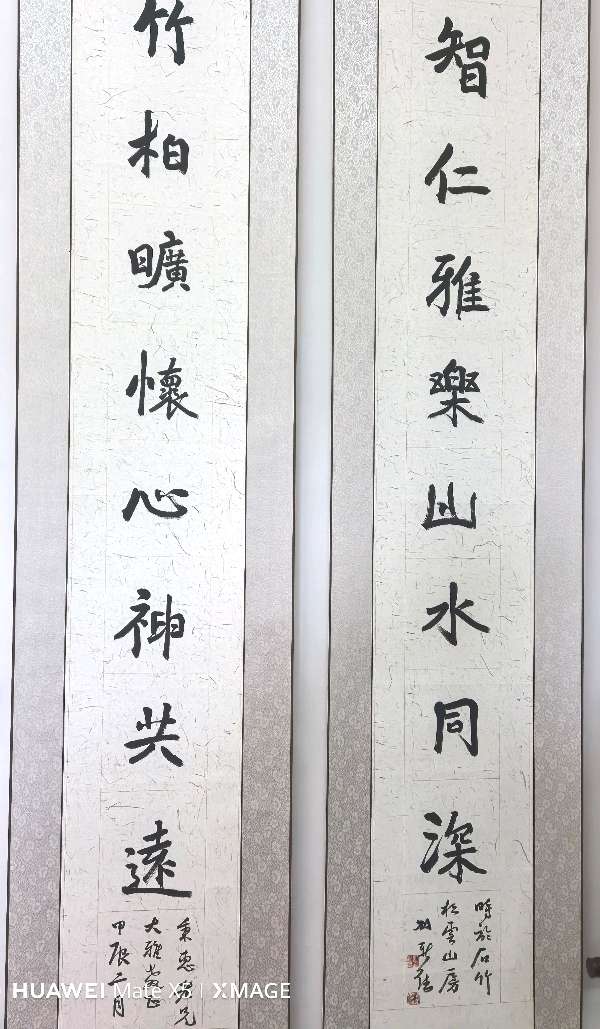 竹柏曠懷心神共遠
秉惠兄
大雅正
甲辰二月
智仁雅樂山水同深
時於石竹
松雲山房
HUAWEI Mate X3 | XMAGE